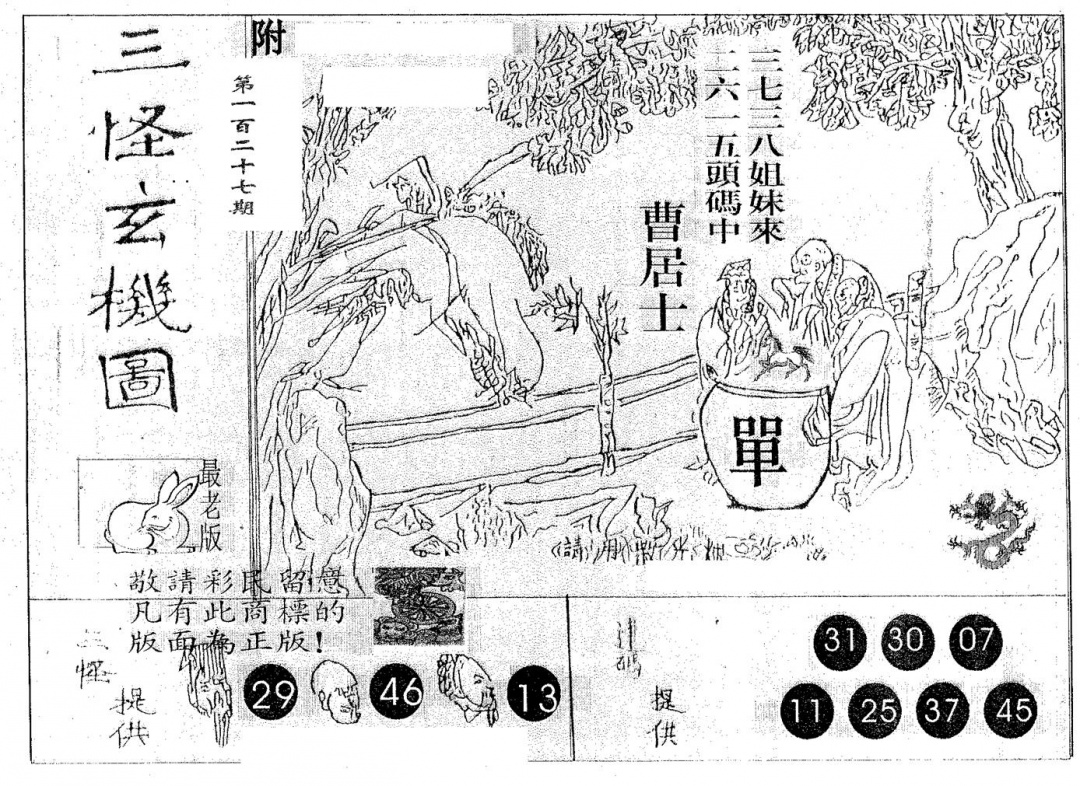 三怪玄機圖
附
第一百二十七期
二七三八姐妹來
二六一五頭碼中
曹居士
單
最老版
敬請彩民留意
凡有此商標的
版面為正版!
三怪
提供
29 46 13
提供
31 30 07
11 25 37 45